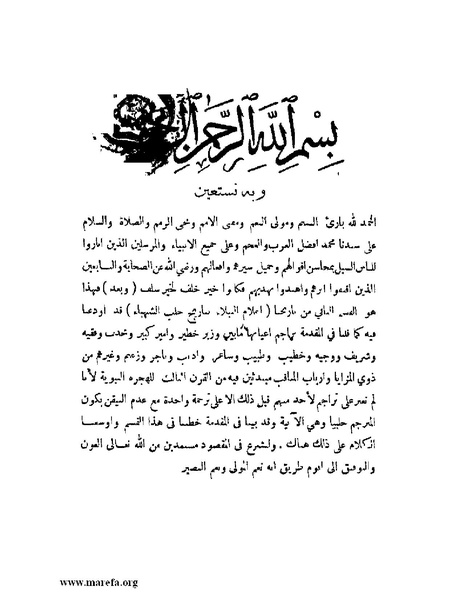 بسم الله الرحمن الرحيم
وبه نستعين
الحمد لله بارئ النسم ومولى النعم ومفنى الامم ومحي الرمم والصلاة والسلام
على سيدنا محمد افضل العرب والعجم وعلى جميع الانبياء والمرسلين الذين اناروا
للناس السبل بمحاسن اقوالهم وجميل سيرهم وافعالهم ورضي الله عن الصحابة والتابعين
الذين اقتفوا اثرهم واهتدوا بهديهم فكانوا خير خلف لخير سلف ( وبعد ) فهذا
هو القسم الثاني من تاريخنا ( اعلام النبلاء بتاريخ حلب الشهباء ) قد اودعنا
فيه كما قلنا في المقدمة تراجم اعيانها مابين وزير خطير وامير كبير ومحدث وفقيه
وشريف ووجيه وخطيب وطبيب وشاعر واديب وتاجر وزعيم وغيرهم من
ذوي المزايا وارباب المناقب مبتدئين فيه من القرن الثالث للهجرة النبوية لأنا
لم نعثر على تراجم لأحد منهم قبل ذلك الا على ترجمة واحدة مع عدم التيقن بكون
المترجم حلبيا وهي الآتية وقد بينا في المقدمة خطتنا في هذا القسم واوسعنا
الكلام على ذلك هناك . ولنشرع في المقصود مستمدين من الله تعالى العون
والتوفيق الى اقوم طريق انه نعم المولى ونعم النصير
www.marefa.org